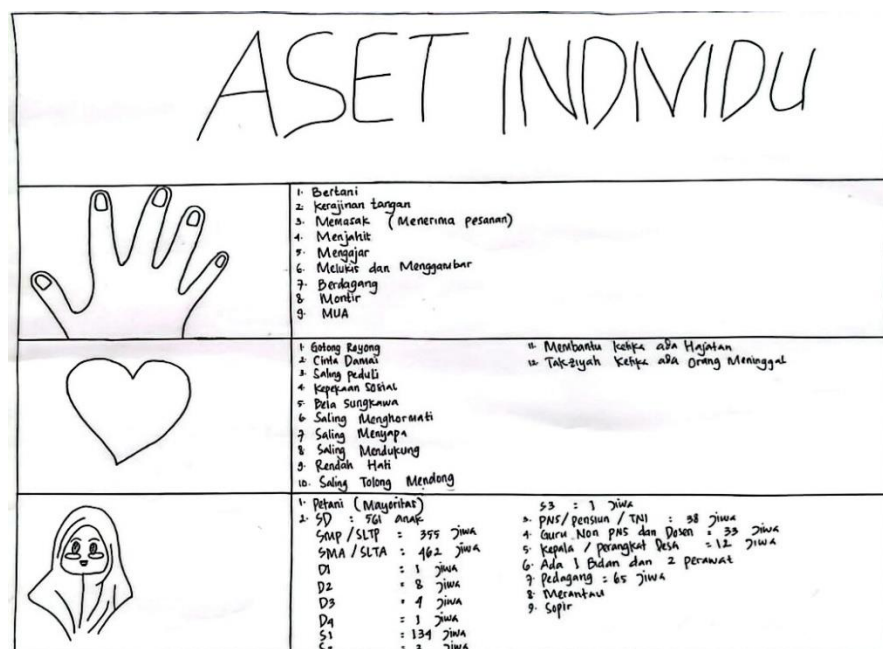 ASET INDIVIDU
1. Bertani
2. Kerajinan tangan
3. Memasak (Menerima pesanan)
4. Menjahit
5. Mengajar
6. Melukis dan Menggambar
7. Berdagang
8. Montir
9. MUA
1. Gotong Royong
2. Cinta Damai
3. Saling Peduli
4. Kepekaan Sosial
5. Bela Sungkawa
6. Saling Menghormati
7. Saling Menyapa
8. Saling Mendukung
9. Rendah Hati
10. Saling Tolong Mendong
11. Membantu Ketika ada Hajatan
12. Takziyah Ketika ada Orang Meninggal
1. Petani (Mayoritas)
2. SD : 561 anak
SMP / SLTP : 355 Jiwa
SMA / SLTA : 462 Jiwa
D1 : 1 Jiwa
D2 : 8 Jiwa
D3 : 4 Jiwa
D4 : 1 Jiwa
S1 : 134 Jiwa
S3 : 1 Jiwa
3. PNS / pensiun / TNI : 38 Jiwa
4. Guru Non PNS dan Dosen : 33 Jiwa
5. Kepala / perangkat Desa : 12 Jiwa
6. Ada 1 Bidan dan 2 perawat
7. Pedagang : 65 Jiwa
8. Merantau
9. Sopir